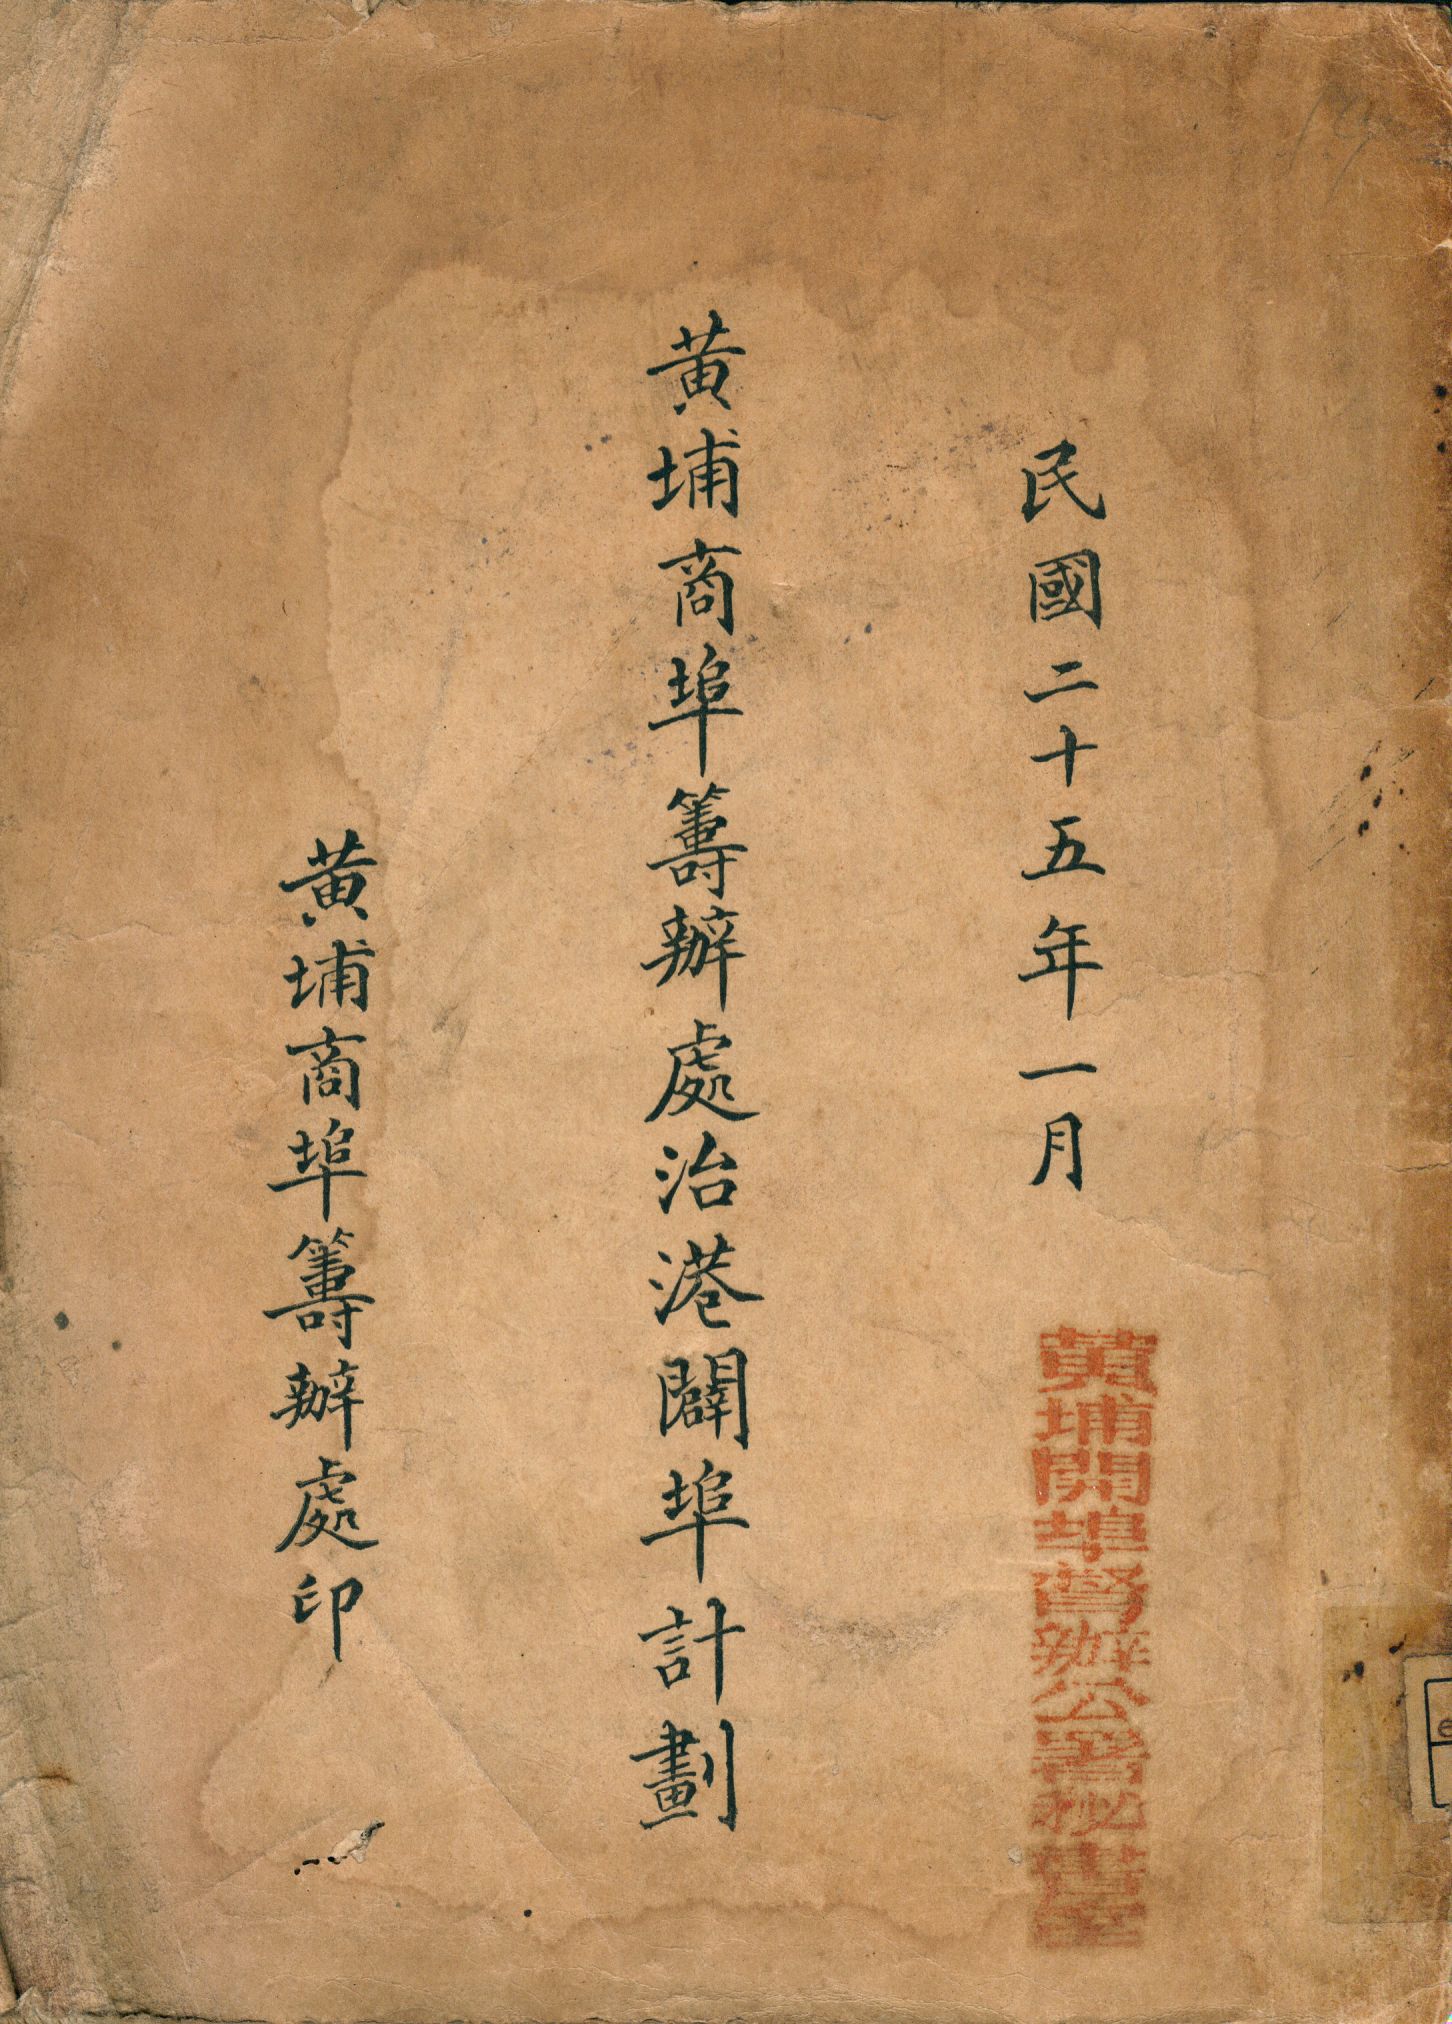 民國二十五年一月
黃埔開埠督辦公署秘書室
黃埔商埠籌辦處治港闢埠計劃
黃埔商埠籌辦處印